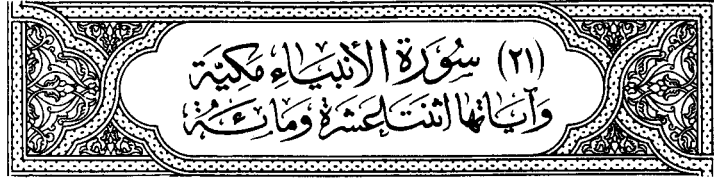 (٢١) سُورَة الأَنبيَاءِ مَكِيَّة
وَآيَاتهَا اثنتَا عَشرَة وَمَائَة